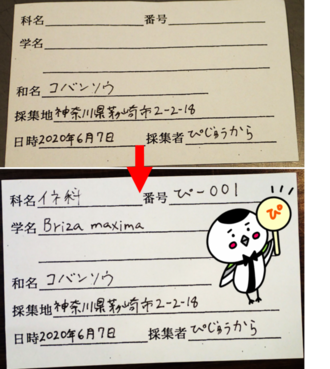 科名 番号
学名
和名 コバンソウ
採集地 神奈川県茅ヶ崎市2-2-18
日時2020年6月7日 採集者 ぴじゅうから
科名 イネ科 番号 ぴ-001
学名 Briza maxima
ぴ
和名 コバンソウ
採集地 神奈川県茅ヶ崎市2-2-18
日時2020年6月7日 採集者 ぴじゅうから